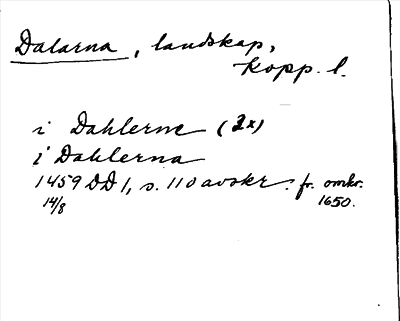 Dalarna, landskap,
Kopp. l.
i Dahlerne (2x)
i Dahlerna
1459 DD 1, s. 110 avskr. fr. omkr.
14/8 1650.